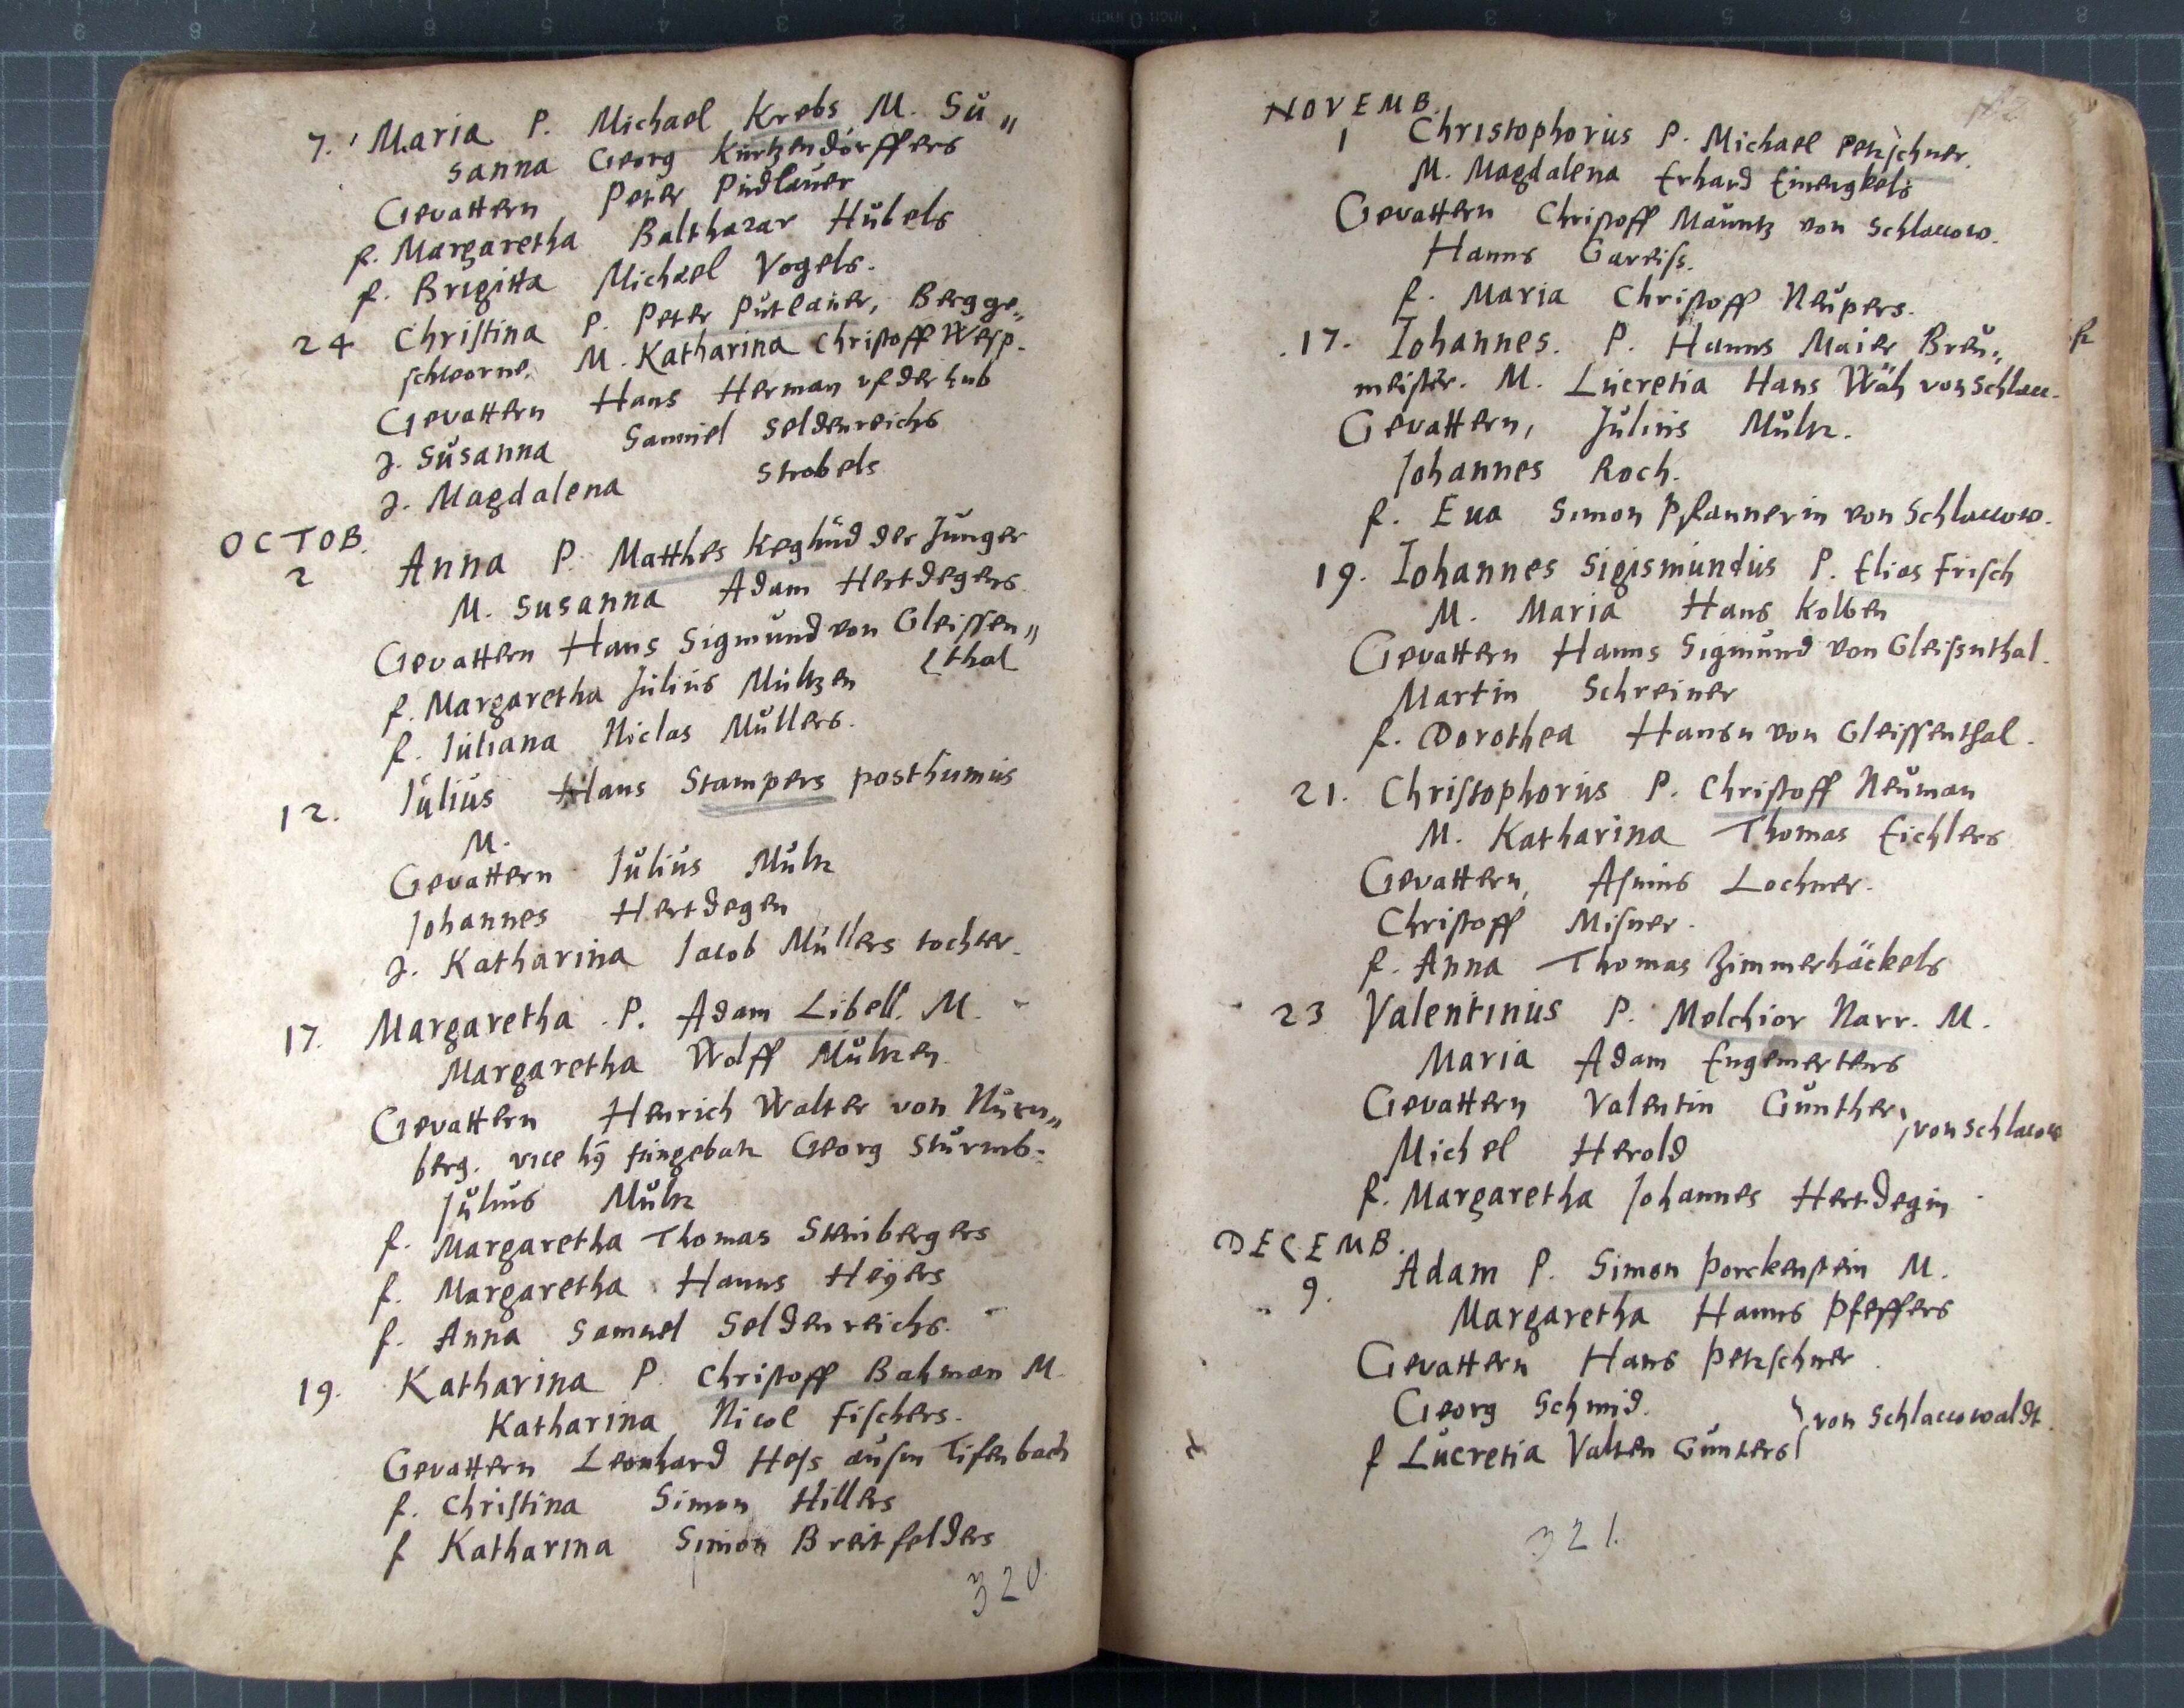 7. Maria P. Michael Krebs M. Su„
sanna Georg Kürtzendörffers
Gevattern Peter Pudlauer
f. Margaretha Balthazar Hübels
f. Brigitta Michael Vogels.
24 Christina P. Peter Putlauer, Bergge„
schworne. M. Katharina Christoff Wesp.
Gevattern Hans Herman uf der hub
J. Susanna Samuel Seldenreichs
J. Magdalena Strobels
OCTOB.
2 Anna P. Matthes Keghüd der Junger
M. Susanna Adam Hertdegens
Gevattern Hans Sigmund von Gleissen„
thal
f. Margaretha Julius Mültzen
f. Juliana Niclas Müllers.
12. Julius Hans Stampers posthumus
M.
Gevattern Julius Mültz
Johannes Hertdegen
J. Katharina Jacob Müllers tochter.
17. Margaretha P. Adam Libell. M.
Margaretha Wolff Mültzen.
Gevattern Henrich Walter von Nürn„
berg. vice Georg Sturmb.
Julius Mültz
f. Margaretha Thomas Steinbergers
f. Margaretha Hanns Heÿers
f. Anna Samuel Seldenreichs.
19. Katharina P. Christoff Bahman M.
Katharina Nicol Fischers.
Gevattern Leonhard Hess ausm Tifenbach
f. Christina Simon Hillers
f Katharina Simon Breitfelders
320
NOVEMB.
1 Christophorus P. Michael Petzschner.
M. Magdalena Erhard
Gevattern Christoff Mauntz von Schlaccow.
Hanns Gareiss.
f. Maria Christoff Neupers.
17. Iohannes. P. Hanns Maier Breu„
meister. M. Lucretia Hans Wäh von Schlacc.
Gevattern, Julius Mültz.
Johannes Roch.
f. Eua Simon Pfannerin von Schlaccow.
19. Iohannes Sigismundus P. Elias Frisch
M. Maria Hans Kolben
Gevattern Hanns Sigmund von Gleissnthal.
Martin Schreiner
f. Dorothea Hansn von Gleissenthal.
21. Christophorus P. Christoff Neuman
M. Katharina Thomas Eichlers
Gevattern, Asmus Lochner.
Christoff Misner.
f. Anna Thomas Zimmerhäckels
23 Valentinus P. Melchior Narr. M.
Maria Adam Engemertens
Gevattern Valentin Günther
von Schlaccow
Michel Herold
f. Margaretha Johannes Hertdegin
DECEMB.
9. Adam P. Simon Porckenstein M.
Margaretha Hanns Pfeffers
Gevattern Hans Petzschner
Georg Schmid.
von Schlaccowaldt.
f Lucretia Valten Günters
321.